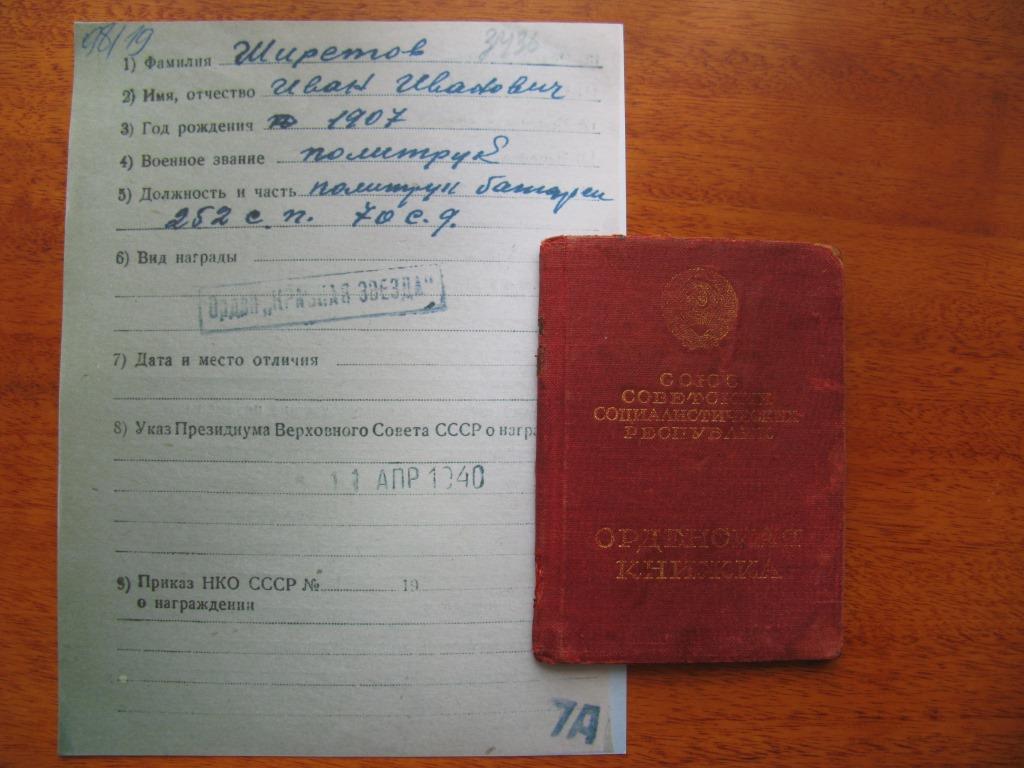 98/19 3436
1) Фамилия Ширетов
2) Имя, отчество Иван Иванович
3) Год рождения 1907
4) Военное звание политрук
5) Должность и часть политрук батареи
252 с. п. 70 с. д.
6) Вид награды
Орден „КРАСНАЯ ЗВЕЗДА"
7) Дата и место отличия
8) Указ Президиума Верховного Совета СССР о награ
11 АПР 1940
9) Приказ НКО СССР № 19
о награждении
7А
СОЮЗ
СОВЕТСКИХ
СОЦИАЛИСТИЧЕСКИХ
РЕСПУБЛИК
ОРДЕНСКАЯ
КНИЖКА